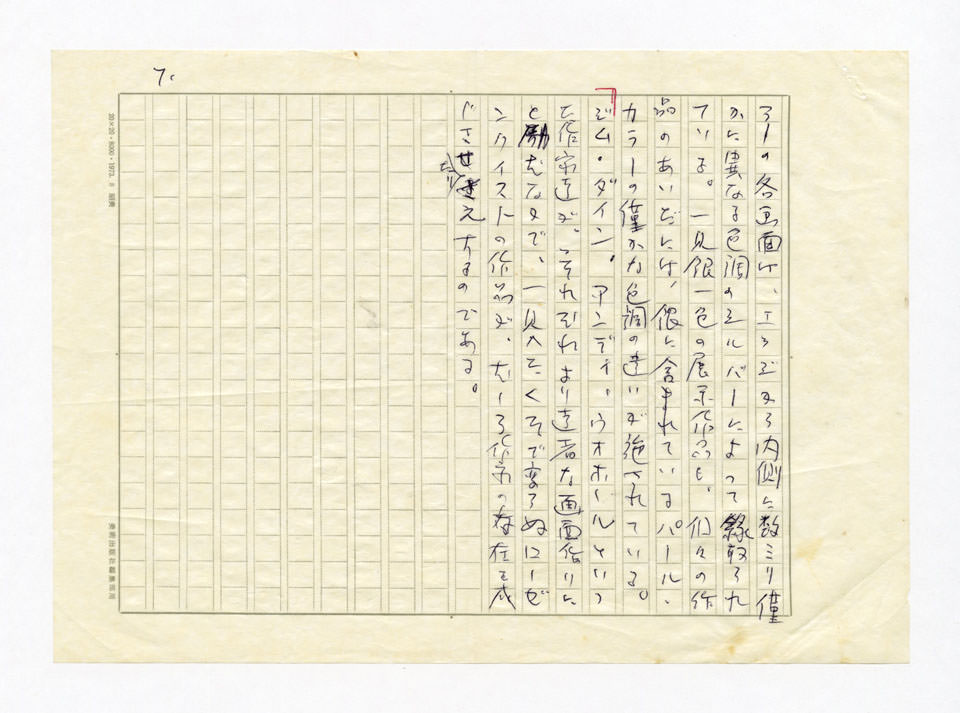 7.
ラーの各画面は、エッジから内側に数ミリ僅
かに異なる色調のシルバーによって縁取られ
ている。一見銀一色の展示作品も、個々の作
品のあいだには、銀に含まれているパール・
カラーの僅かな色調の違いが施されている。
ジム・ダイン。アンディ・ウオホールといっ
た作家達が、それぞれより達者な画面作りに
と励むなかで、一見へたくそで変らぬローゼ
ンクイストの作品が、むしろ作家の存在を感
じさせ
たり
えするのである。
20×20・8000・1973.8 昭美
美術出版社編集部用